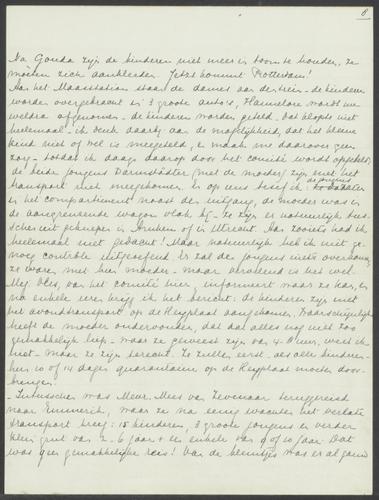 8
Na Gouda zijn de kinderen niet meer in toom te houden, ze
moeten zich aankleeden. Jetzt kommt Rotterdam!
Aan het Maasstation staan de dames aan de trein. de kinderen
worden overgebracht in 3 groote auto's, Hannelore wordt me
weldra afgenomen - de kinderen worden geteld. Dat klopt niet
heelemaal - ik denk daarbij aan de mogelijkheid, dat het kleine
kind niet of wel is meegeteld, en maak me daarover geen
zorg - totdat ik daags daarop door het comité wordt opgebeld,
de beide jongens Darmstädter (met de moeder) zijn met het
transport niet meegekomen. Er op uns besef ik: de jongens zaten
in het compartiment naast de uitgang, de moeder was in
de aangrenzende wagon vlak bij - ze zijn er natuurlijk tus-
schen uit geknepen in Arnhem of in Utrecht. Aan zooiets had ik
heelemaal niet gedacht! Maar natuurlijk heb ik niet ge-
noeg contrôle uitgeoefend. Er zal de jongens niets overkomen,
ze waren met hun moeder - maar vervelend is het wel.
Mej. Vles, van het comité hier, informeert waar ze kan, en
na enkele uren krijg ik het bericht: de kinderen zijn met
het avondtransport op de Heyplaat aangekomen. Waarschijnlijk
heeft de moeder ondervonden, dat dat alles nog niet zoo
gemakkelijk liep - waar ze geweest zijn van 4-8 uur, weet ik
niet - maar ze zijn terecht. Ze zullen eerst - als alle kinderen -
hun 10 of 14 dagen quarantaine op de Heyplaat moeten door-
brengen.
- Intusschen was Mevr. Mees van Zevenaar teruggereisd
naar Emmerik, waar ze na eenig wachten het verlate
transport kreeg: 15 kinderen, 3 groote jongens en verder
klein grut van 2-6 jaar + een enkele van 9 of 10 jaar. Dat
was geen gemakkelijke reis! Van de kleintjes was er al gauw